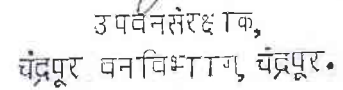 उपवनसंरक्षक,
चंद्रपूर वनविभाग, चंद्रपूर.